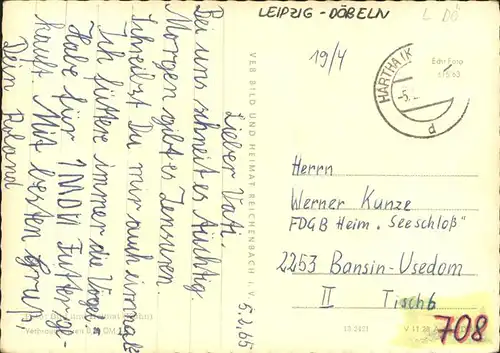 LEIPZIG - DÖBELN
L DÖ
19/4
Echt Foto
HARTHA (K
d
5.2.65
Lieber Vati,
Bei uns schneit es tüchtig.
Morgen gibt es Zensuren.
Schreibst Du mir auch einmal?
Ich füttere immer die Vögel.
Habe für 1 MDN Futter ge=
kauft. Mit besten Gruß,
Dein Roland
VEB BILD UND HEIMAT REICHENBACH I. V.
Herrn
Werner Kunze
FDGB Heim „Seeschloß"
2253 Bansin-Usedom
II Tisch 6
708